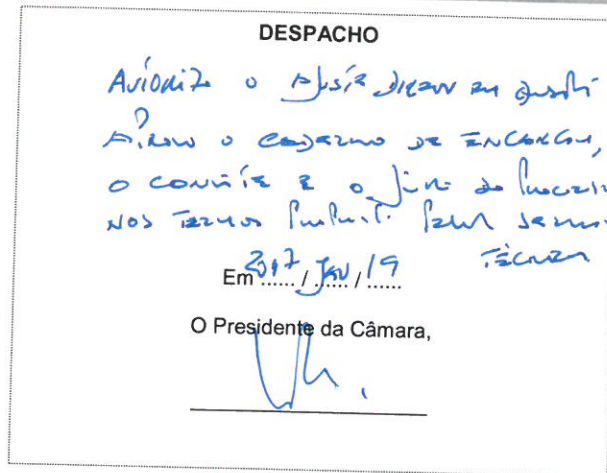 DESPACHO
Autorizo o Ajuste Direto em questão
Aprovo o caderno de Encargos,
o convite e o Júri do Procedi
nos Termos Propost. pelos servi
Técnicos
Em 2017 / Jan / 19
O Presidente da Câmara,